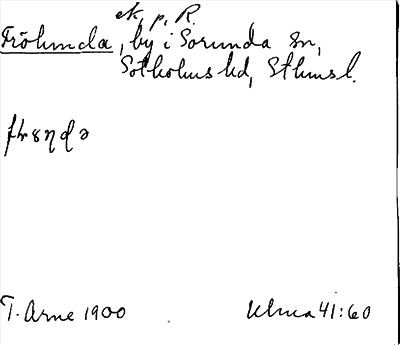 ek. p. R.
Fröhunda, by i Sorunda sn,
Sotholms hd, Sthms l.
T. Arne 1900
Ulma 41:60